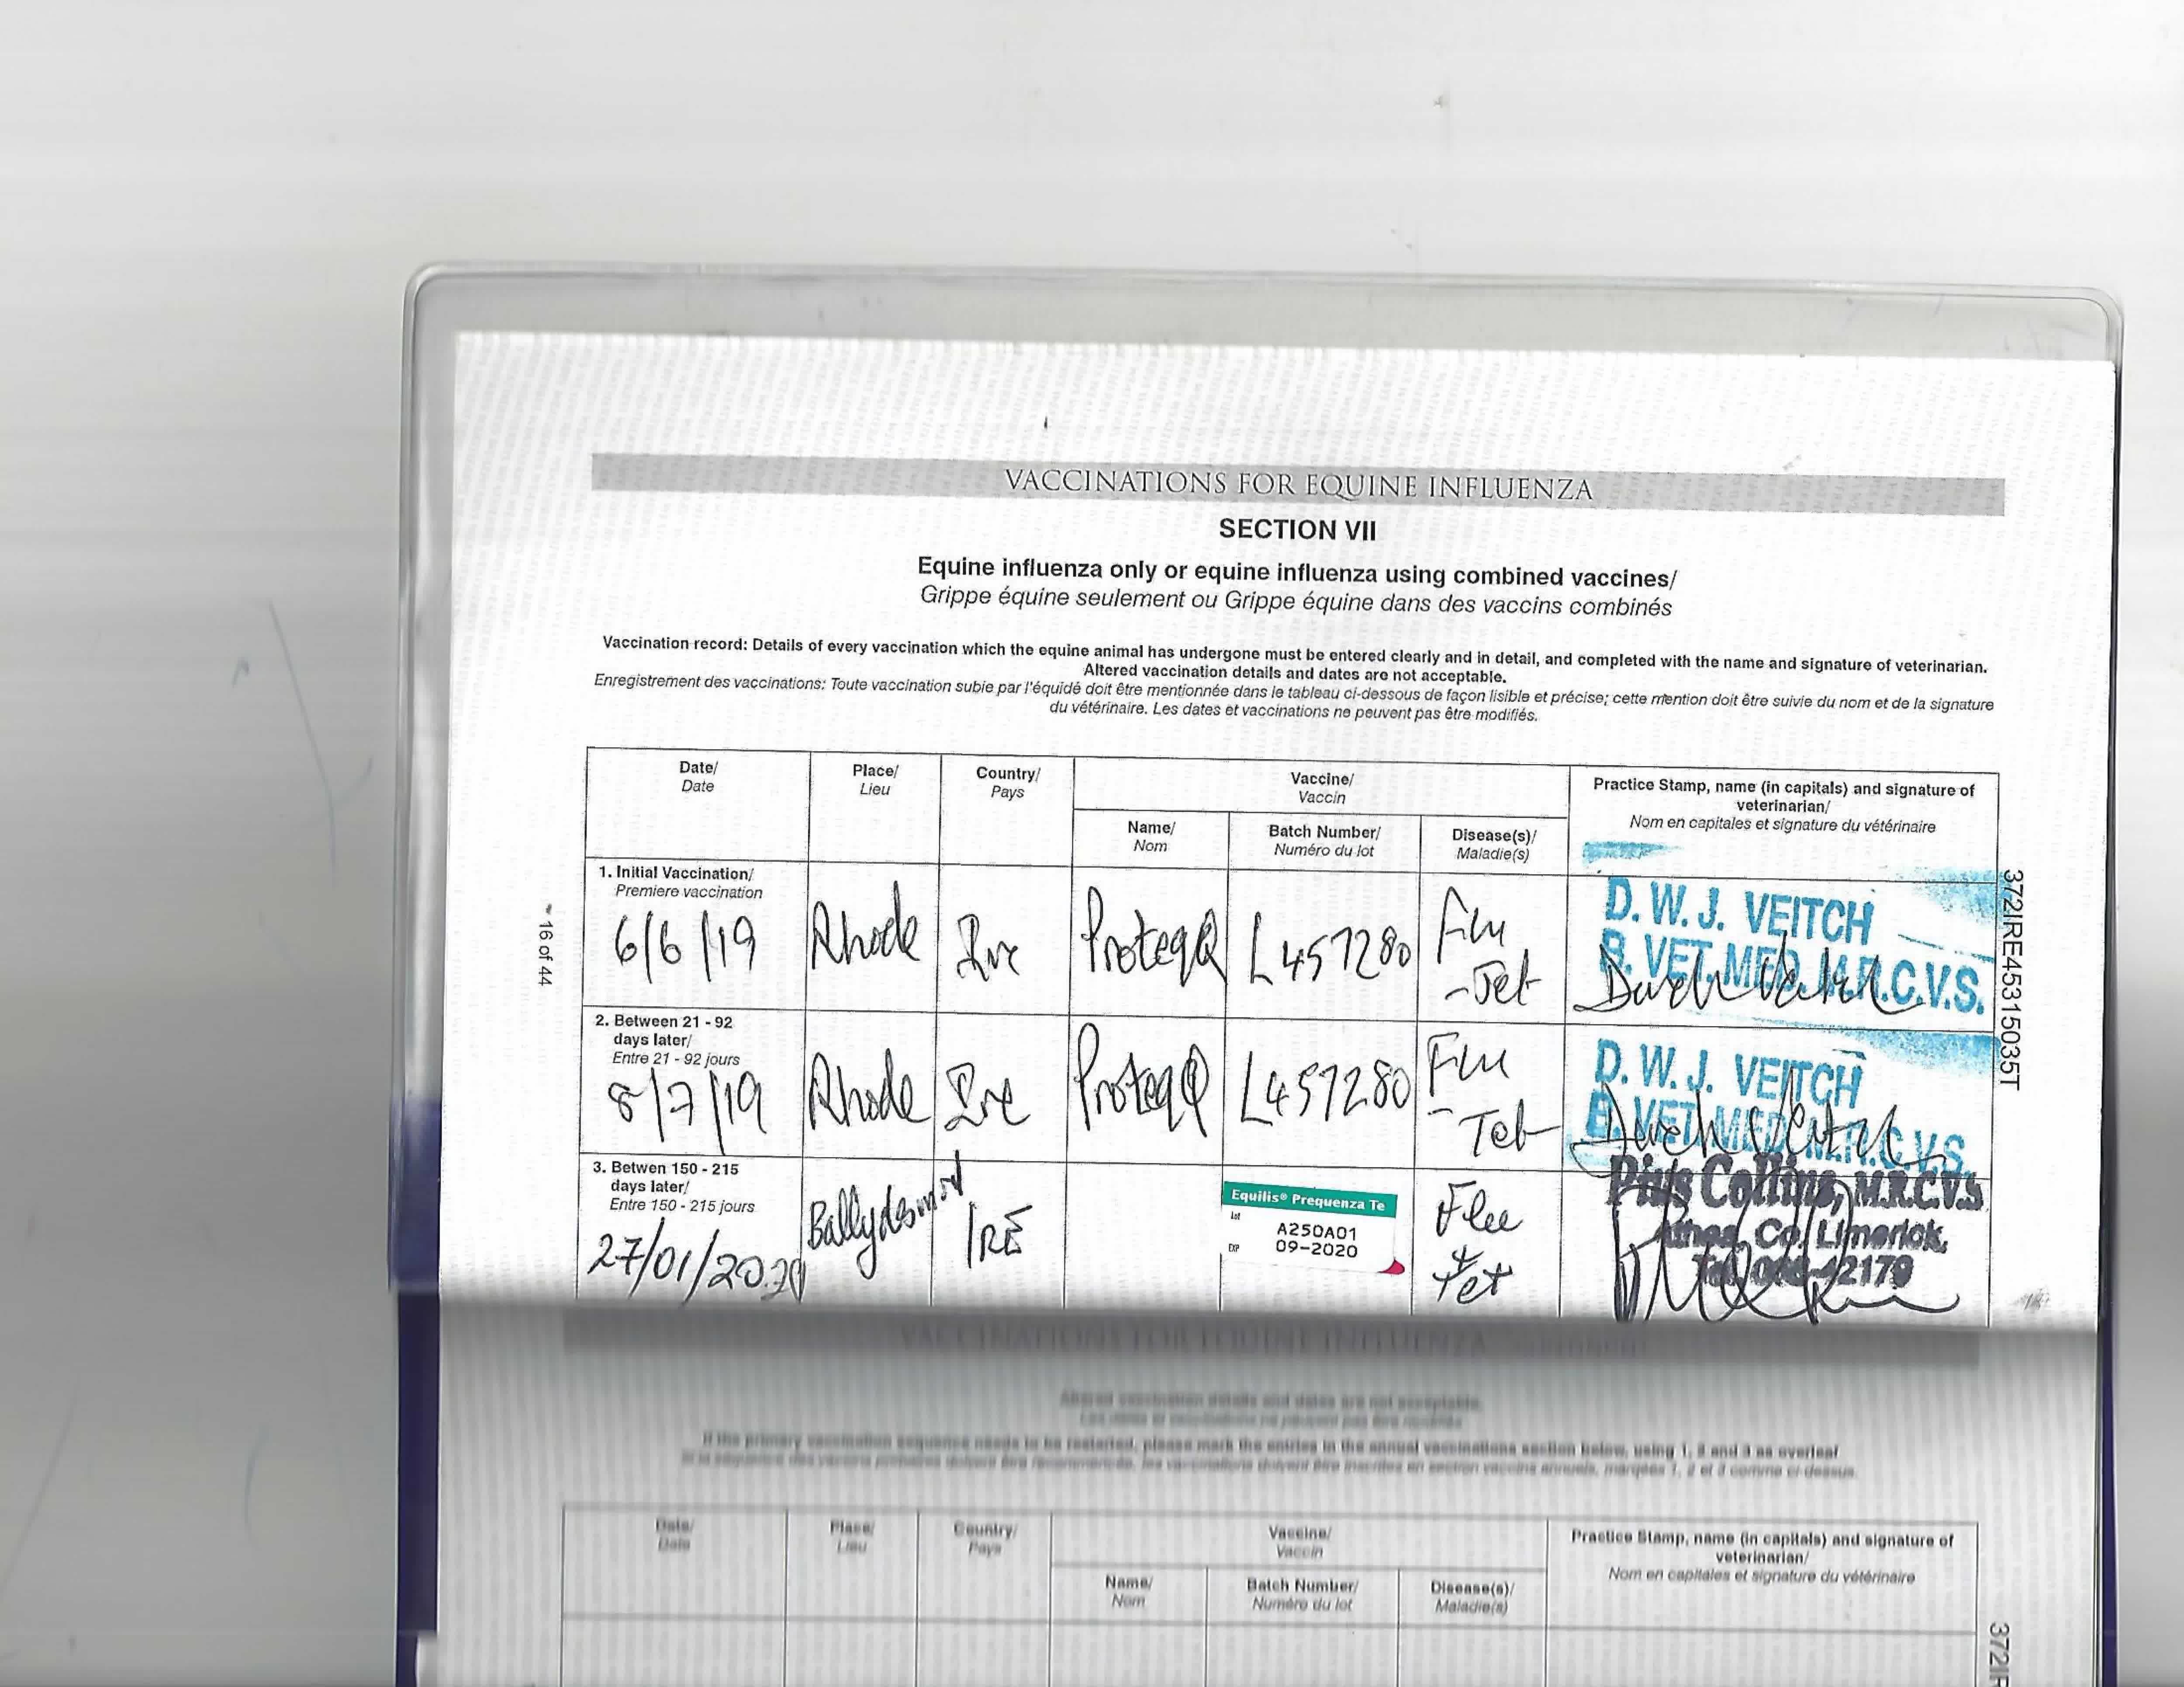 VACCINATIONS FOR EQUINE INFLUENZA
SECTION VII
Equine influenza only or equine influenza using combined vaccines/
Grippe équine seulement ou Grippe équine dans des vaccins combinés
Vaccination record: Details of every vaccination which the equine animal has undergone must be entered clearly and in detail, and completed with the name and signature of veterinarian.
Altered vaccination details and dates are not acceptable.
Enregistrement des vaccinations: Toute vaccination subie par l'équidé doit être mentionnée dans le tableau ci-dessous de façon lisible et précise; cette mention doit être suivie du nom et de la signature
du vétérinaire. Les dates et vaccinations ne peuvent pas être modifiés.
Date/
Date
Place/
Lieu
Country/
Pays
Vaccine/
Vaccin
Practice Stamp, name (in capitals) and signature of
veterinarian/
Nom en capitales et signature du vétérinaire
Name/
Nom
Batch Number/
Numéro du lot
Disease(s)/
Maladie(s)
1. Initial Vaccination/
Premiere vaccination
6/6/19
Rhode
Ire
ProteqQ
L457280
Flu
-Tet
D. W. J. VEITCH
B. VET. MED. M.R.C.V.S.
2. Between 21 - 92
days later/
Entre 21 - 92 jours
8/7/19
Rhode
Ire
ProteqQ
L457280
Flu
- Tet
D. W. J. VEITCH
B. VET. MED. M.R.C.V.S.
3. Betwen 150 - 215
days later/
Entre 150 - 215 jours
27/01/2020
Ballydesmond
IRE
Equilis® Prequenza Te
Lot
A250A01
EXP
09-2020
Flu
+
Tet
Pius Collins, M.R.C.V.S
Co. Limerick,
16 of 44
372IRE45315035T
VACCINATIONS FOR EQUINE INFLUENZA
Altered vaccination details and dates are not acceptable.
Les dates et vaccinations ne peuvent pas être modifiés
If the primary vaccination sequence needs to be restarted, please mark the entries in the annual vaccinations section below, using 1, 2 and 3 as overleaf
Date/
Date
Place/
Lieu
Country/
Pays
Vaccine/
Vaccin
Practice Stamp, name (in capitals) and signature of
veterinarian/
Nom en capitales et signature du vétérinaire
Name/
Nom
Batch Number/
Numéro du lot
Disease(s)/
Maladie(s)
372IR